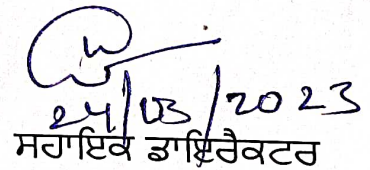 24/03/2023
ਸਹਾਇਕ ਡਾਇਰੈਕਟਰ